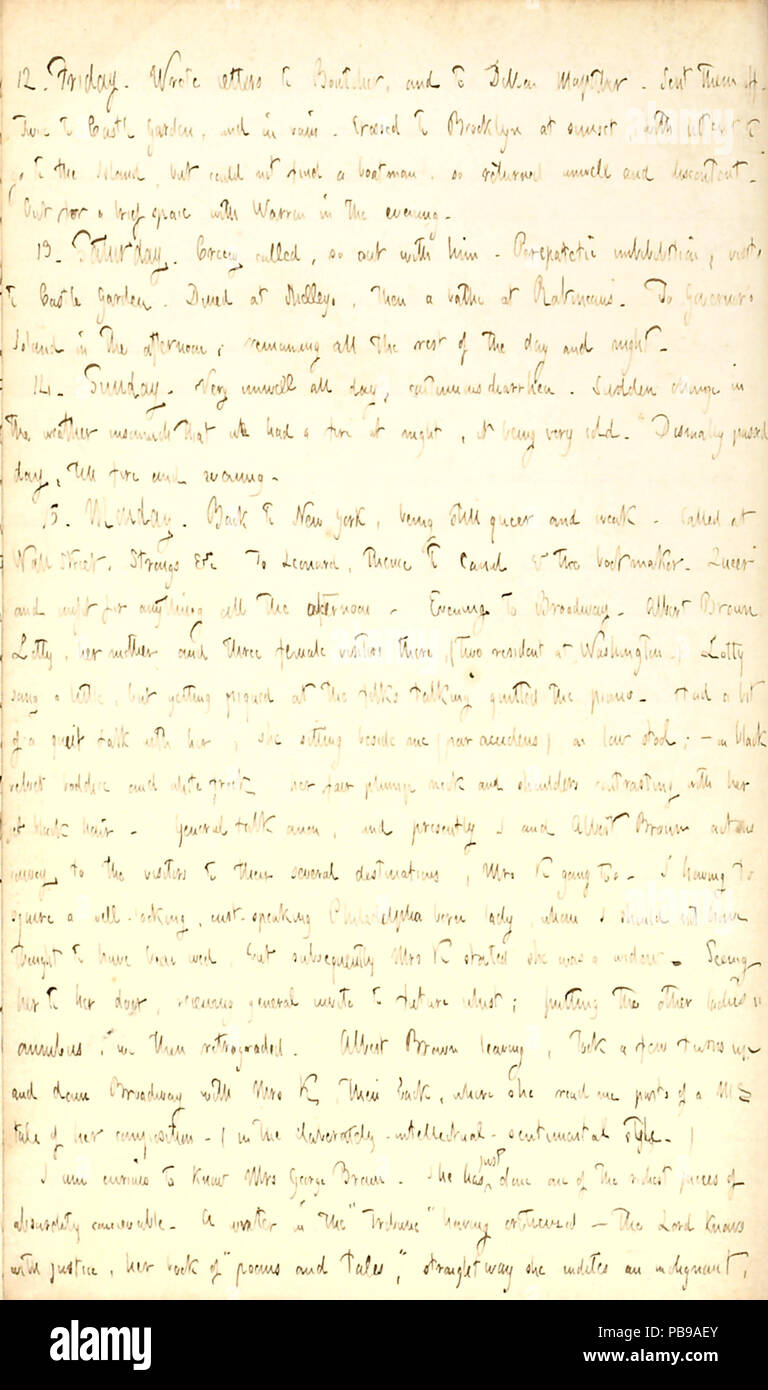 12. Friday. Wrote letters to Boutcher, and to Dillon Mapother. Sent them off.
Twice to Castle Garden, and in vain. Crossed to Brooklyn at sunset with intent to
go to the Island, but could not find a boatman, so returned unwell and discontent.
Out for a brief space with Warren in the evening.
13. Saturday. Creecy called, so out with him. Peripatetic imbibition, visit
to Castle Garden. Dined at , then a bathe at Rabineau's. To Governor's
Island in the afternoon, remaining all the rest of the day and night.
14. Sunday. Very unwell all day, continuous diarrhea. Sudden change in
the weather insomuch that we had a fire at night, it being very cold. Dismally passed
day, till fire and evening.
15. Monday. Back to New York, being still queer and weak. Called at
Wall Street, Strongs &c. To Leonard, thence to Canal & the bootmaker. Queer
and unfit for anything all the afternoon. Evening to Broadway. Albert Brown,
Lotty, her mother and three female visitors there, (two resident at Washington.) Lotty
sang a little, but getting piqued at the folks talking quitted the piano. Had a bit
of a quiet talk with her, she sitting beside me (par accidens) on low stool; — in black
velvet boddice and white frock, her fair plump neck and shoulders contrasting with her
jet black hair. General talk anon, and presently I and Albert Brown
away to the visitors to their several destinations, Mrs K going too. I having to
squire a well-looking, curt-speaking Philadelphia born lady, whom I should not have
thought to have been wed, but subsequently Mrs K stated she was a widow. Seeing
her to her door, receiving general invite to future visit; putting the other ladies in
omnibus, we then retrograded. Albert Brown leaving, took a few turns up
and down Broadway with Mrs K, then back, where she read me parts of a MS
tale of her composition. (in the elaborately-intellectual-sentimental style.)
I am curious to know Mrs George Brown. She has just done one of the richest pieces of
absurdity conceivable. A writer in the "Tribune" having criticised — the Lord knows
with justice, her book of "poems and tales," straightway she indites an indignant,
alamy
Image ID: PB9AEY
www.alamy.com